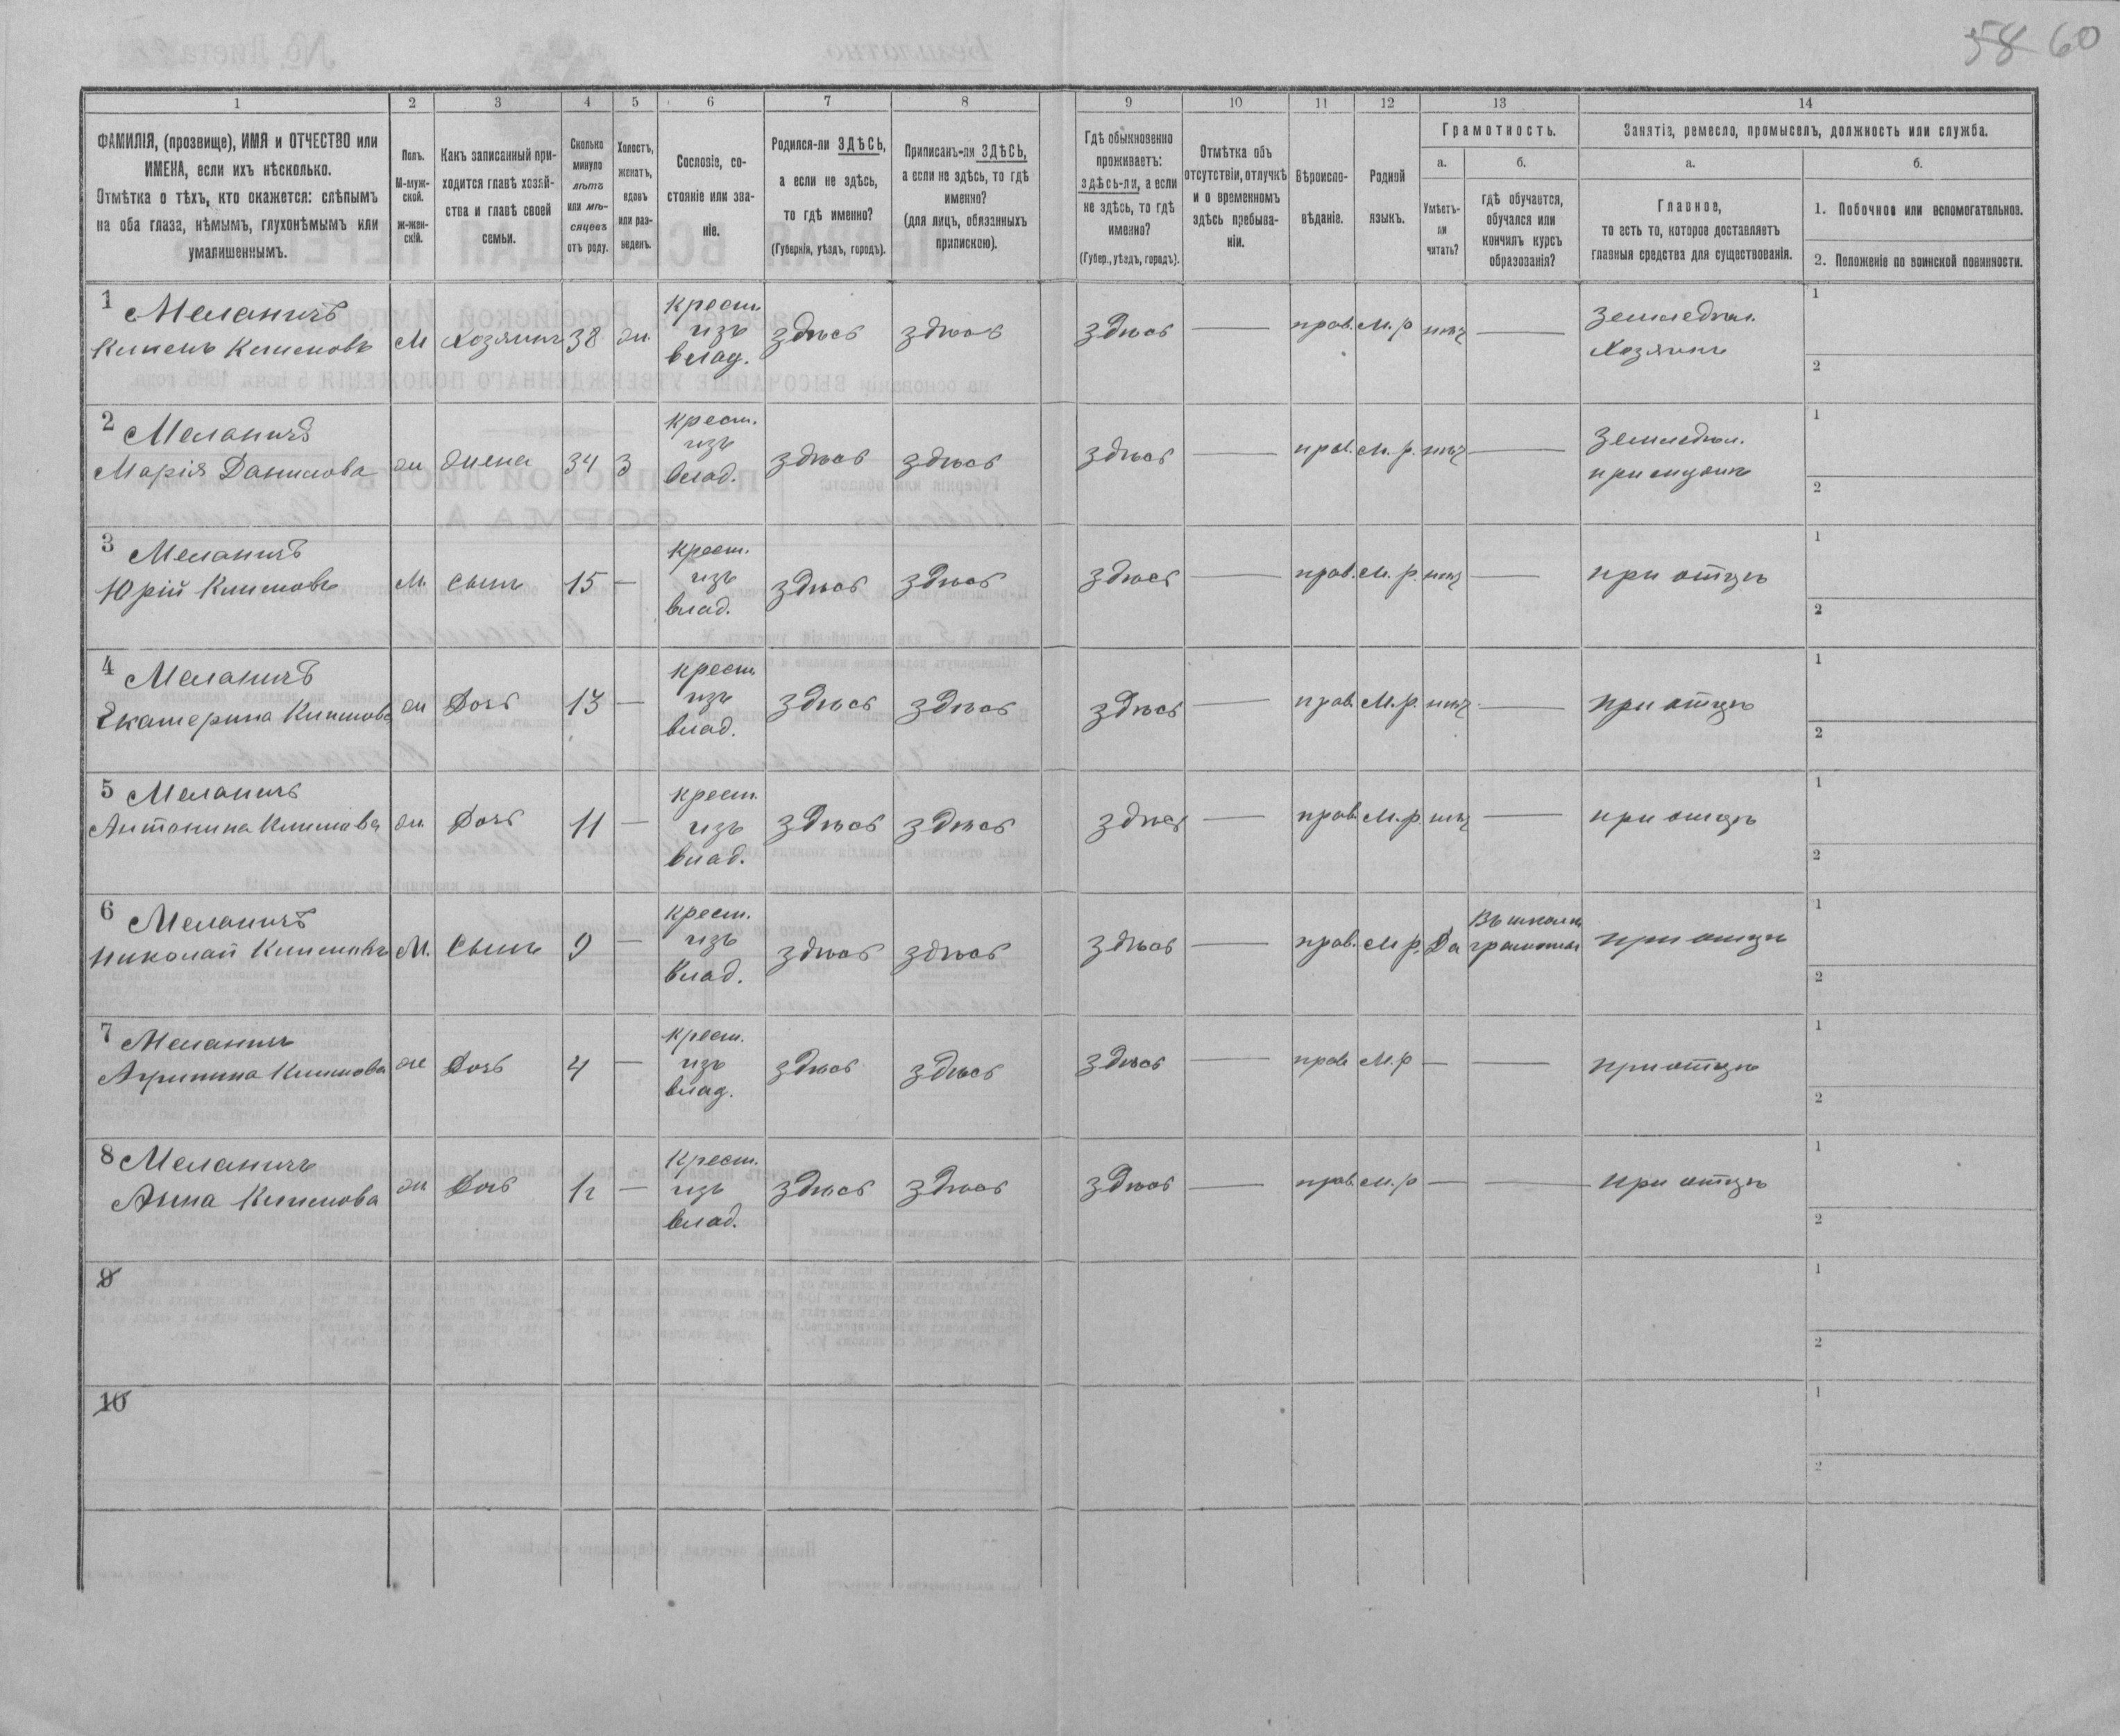 58 60
1 2 3 4 5 6 7 8 9 10 11 12 13 14
ФАМИЛІЯ, (прозвище), ИМЯ и ОТЧЕСТВО или
ИМЕНА, если ихъ нѣсколько.
Отмѣтка о тѣхъ, кто окажется: слѣпымъ
на оба глаза, нѣмымъ, глухонѣмымъ или
умалишеннымъ.
Полъ.
М-муж-
ской.
ж-жен-
скій.
Какъ записанный при-
ходится главѣ хозяй-
ства и главѣ своей
семьи.
Сколько
минуло
лѣтъ
или мѣ-
сяцевъ
отъ роду.
Холостъ,
женатъ,
вдовъ
или раз-
веденъ.
Сословіе, со-
стояніе или зва-
ніе.
Родился-ли ЗДѢСЬ,
а если не здѣсь,
то гдѣ именно?
(Губернія, уѣздъ, городъ).
Приписанъ-ли ЗДѢСЬ,
а если не здѣсь, то гдѣ
именно?
(для лицъ, обязанныхъ
припискою).
Гдѣ обыкновенно
проживаетъ:
здѣсь-ли, а если
не здѣсь, то гдѣ
именно?
(Губер., уѣздъ, городъ).
Отмѣтка объ
отсутствіи, отлучкѣ
и о временномъ
здѣсь пребыва-
ніи.
Вѣроиспо-
вѣданіе.
Родной
языкъ.
Грамотность.
а.
Умѣетъ-
ли
читать?
б.
гдѣ обучается,
обучался или
кончилъ курсъ
образованія?
Занятіе, ремесло, промыселъ, должность или служба.
а.
Главное,
то есть то, которое доставляетъ
главныя средства для существованія.
б.
1. Побочное или вспомогательное.
2. Положеніе по воинской повинности.
1 Меланичъ
Климовъ М Хозяинъ 38 ж.
крест.
изъ
влад.
здѣсь здѣсь здѣсь — прав. М.р нѣт —
Земледѣл.
Хозяинъ
1
2
2 Меланичъ
Марія Данилова ж жена 34 З
крест.
изъ
влад.
здѣсь здѣсь здѣсь — прав. М.р. нѣт —
Земледѣл.
при мужѣ
1
2
3 Меланичъ
Юрій Климовъ М. сынъ 15 —
крест.
изъ
влад.
здѣсь здѣсь здѣсь — прав. М.р нѣт — при отцѣ
1
2
4 Меланичъ
Екатерина Климова ж Дочь 13 —
крест
изъ
влад.
здѣсь здѣсь здѣсь — прав. М.р. нѣт — при отцѣ
1
2
5 Меланичъ
Антонина Климова ж Дочь 11 —
крест.
изъ
влад.
здѣсь здѣсь здѣсь — прав. М.р. нѣт — при отцѣ
1
2
6 Меланичъ
Николай Климовъ М. Сынъ 9 —
крест.
изъ
влад.
здѣсь здѣсь здѣсь — прав. М р. Да
Въ школѣ
грамоты
при отцѣ
1
2
7 Меланичъ
Агрипина Климова ж Дочь 4 —
крест.
изъ
влад.
здѣсь здѣсь здѣсь — прав М.р — — при отцѣ
1
2
8 Меланичъ
Анна Климова ж Дочь 1г —
Крест.
изъ
влад.
здѣсь здѣсь здѣсь — прав. М.р — — при отцѣ
1
2
9
1
2
10
1
2